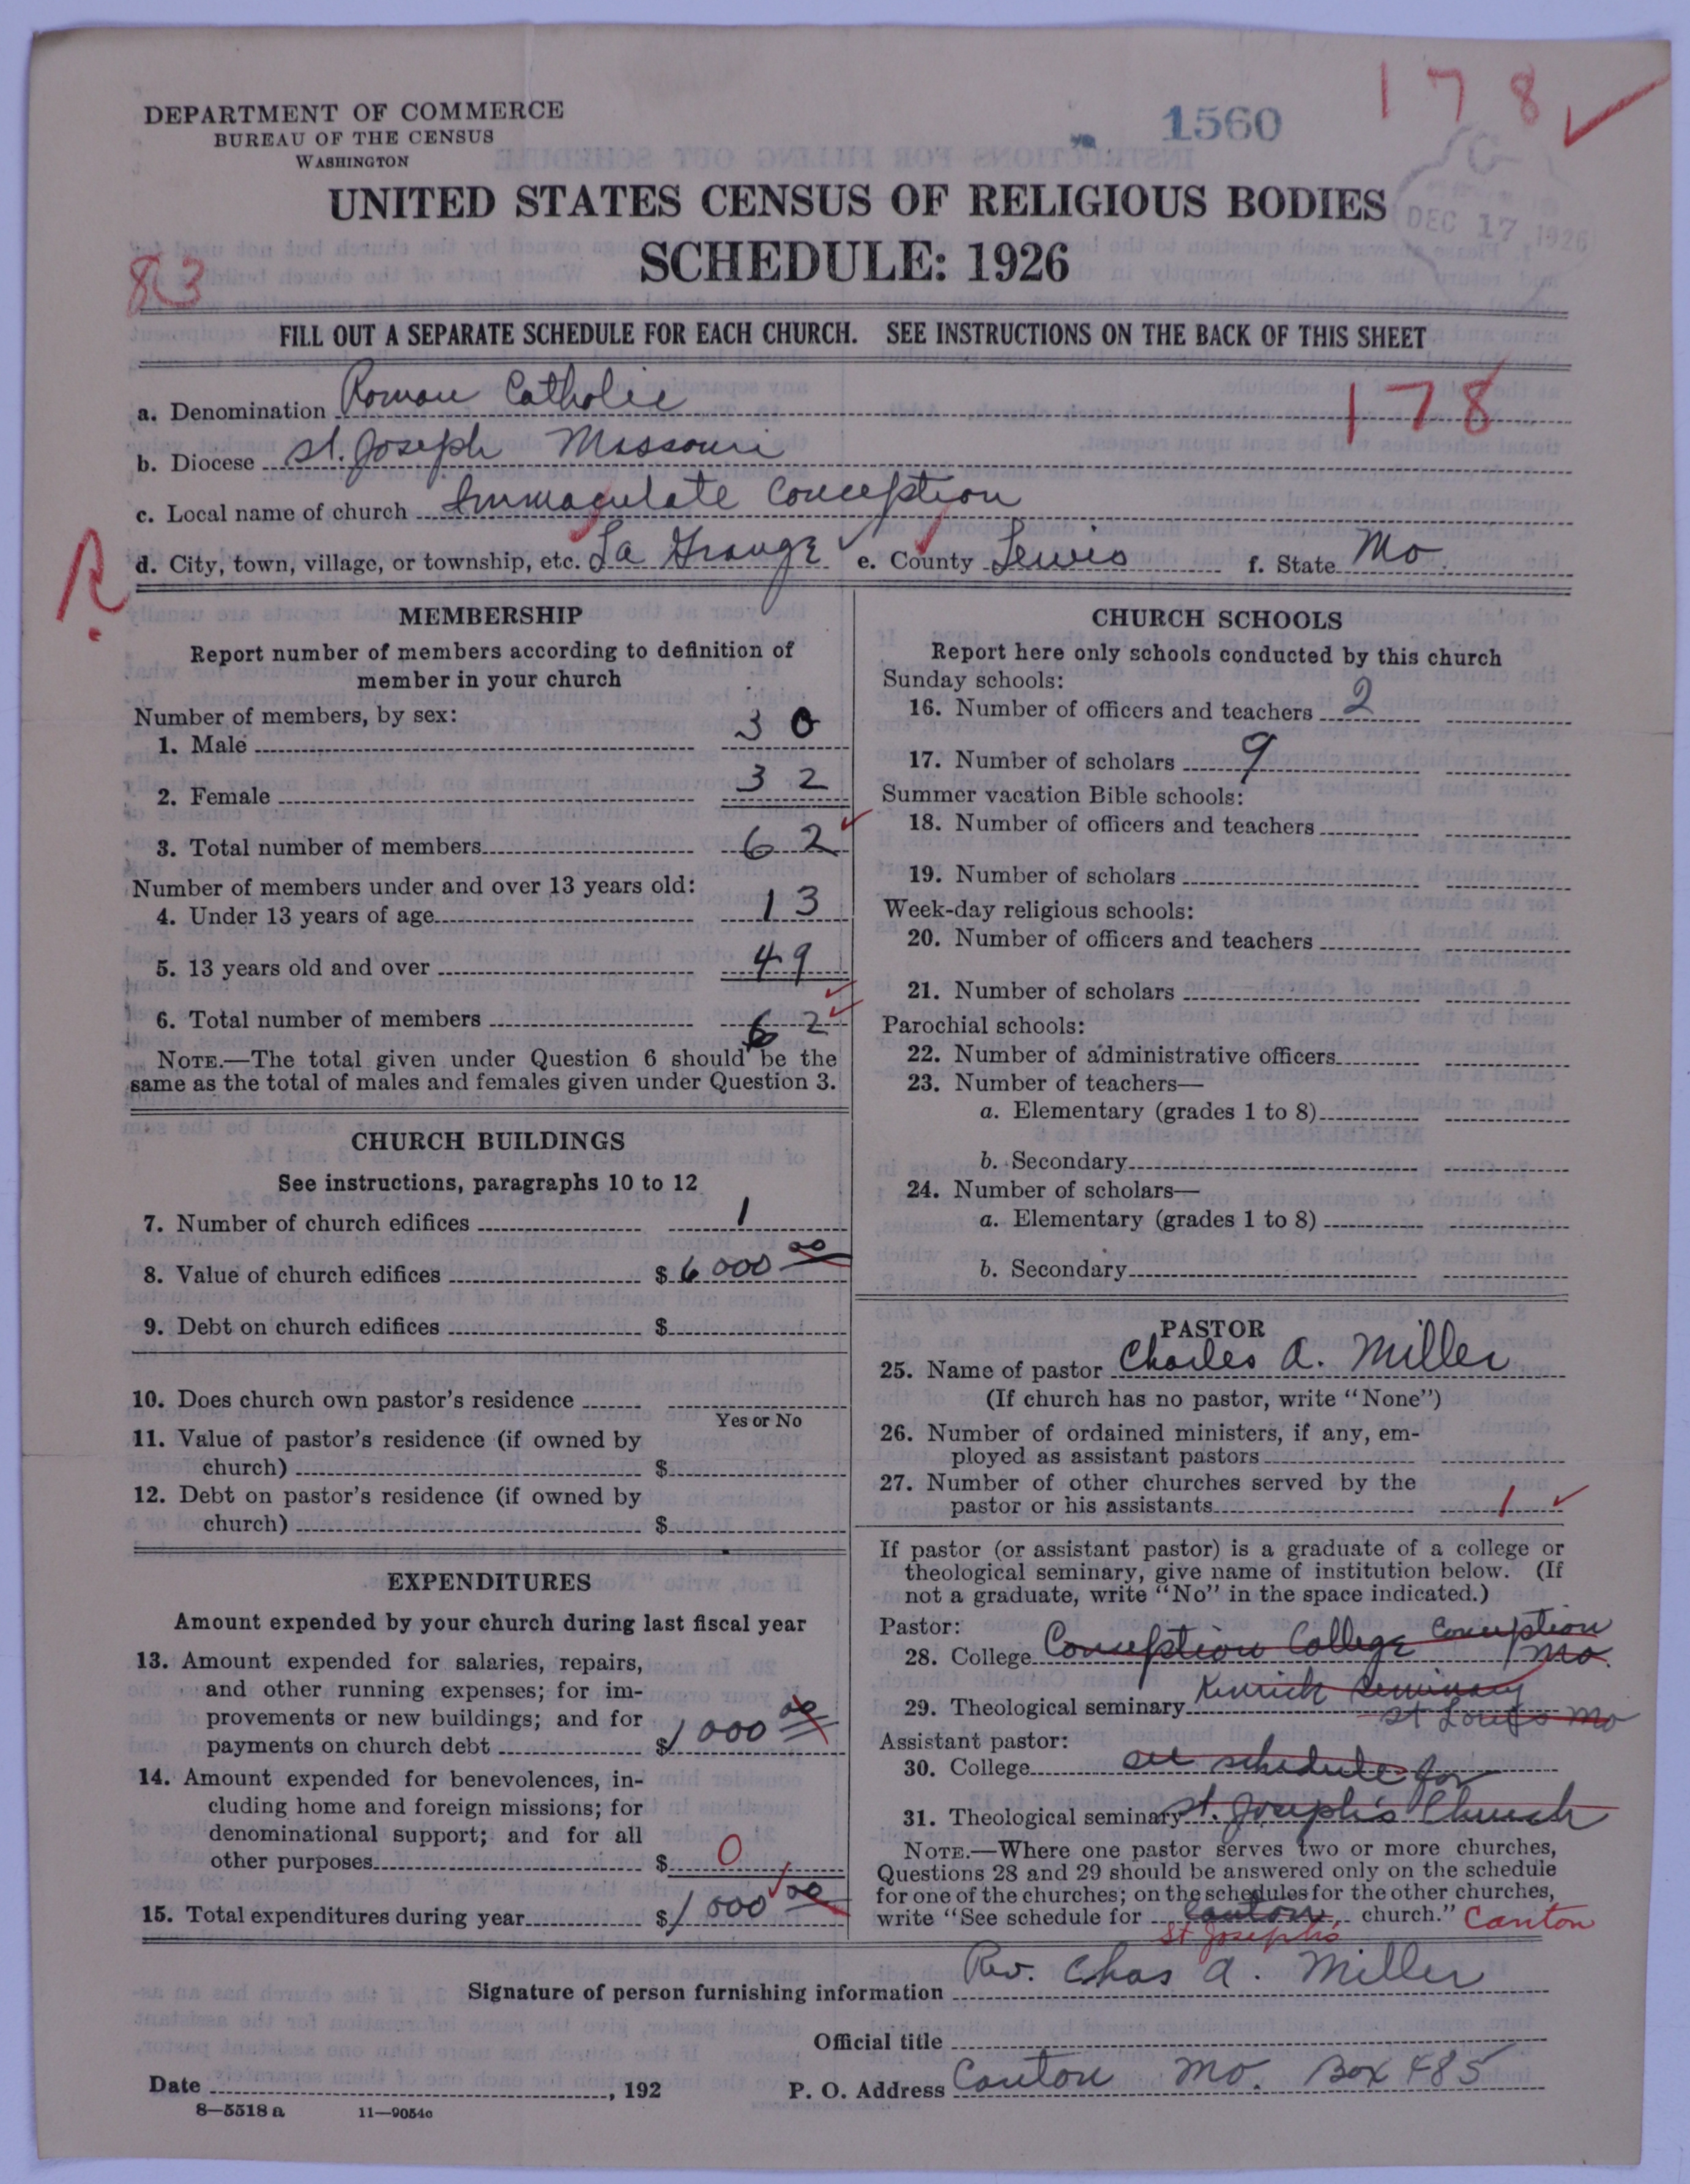 DEPARTMENT OF COMMERCE
BUREAU OF THE CENSUS
WASHINGTON
1560
178
DEC 17 1926
UNITED STATES CENSUS OF RELIGIOUS BODIES
SCHEDULE: 1926
83
FILL OUT A SEPARATE SCHEDULE FOR EACH CHURCH. SEE INSTRUCTIONS ON THE BACK OF THIS SHEET
a. Denomination Roman Catholic 178
b. Diocese St. Joseph Missouri
c. Local name of church Immaculate Conception
R.
d. City, town, village, or township, etc. La Grange e. County Lewis f. State Mo.
MEMBERSHIP
Report number of members according to definition of
member in your church
Number of members, by sex:
1. Male 30
2. Female 32
3. Total number of members 62
Number of members under and over 13 years old:
4. Under 13 years of age 13
5. 13 years old and over 49
6. Total number of members 62
NOTE.—The total given under Question 6 should be the
same as the total of males and females given under Question 3.
CHURCH BUILDINGS
See instructions, paragraphs 10 to 12
7. Number of church edifices 1
8. Value of church edifices $ 6000 00
9. Debt on church edifices $
10. Does church own pastor's residence
Yes or No
11. Value of pastor's residence (if owned by
church) $
12. Debt on pastor's residence (if owned by
church) $
EXPENDITURES
Amount expended by your church during last fiscal year
13. Amount expended for salaries, repairs,
and other running expenses; for im-
provements or new buildings; and for
payments on church debt $ 1000 00
14. Amount expended for benevolences, in-
cluding home and foreign missions; for
denominational support; and for all
other purposes $ 0
15. Total expenditures during year $ 1000 00
CHURCH SCHOOLS
Report here only schools conducted by this church
Sunday schools:
16. Number of officers and teachers 2
17. Number of scholars 9
Summer vacation Bible schools:
18. Number of officers and teachers
19. Number of scholars
Week-day religious schools:
20. Number of officers and teachers
21. Number of scholars
Parochial schools:
22. Number of administrative officers
23. Number of teachers—
a. Elementary (grades 1 to 8)
b. Secondary
24. Number of scholars—
a. Elementary (grades 1 to 8)
b. Secondary
PASTOR
25. Name of pastor Charles A. Miller
(If church has no pastor, write "None")
26. Number of ordained ministers, if any, em-
ployed as assistant pastors
27. Number of other churches served by the
pastor or his assistants 1
If pastor (or assistant pastor) is a graduate of a college or
theological seminary, give name of institution below. (If
not a graduate, write "No" in the space indicated.)
Pastor:
28. College Conception College Conception
Mo.
29. Theological seminary Kenrick Seminary
St Louis Mo
Assistant pastor:
30. College see schedule for
31. Theological seminary St. Joseph's Church
NOTE.—Where one pastor serves two or more churches,
Questions 28 and 29 should be answered only on the schedule
for one of the churches; on the schedules for the other churches,
write "See schedule for Canton church." Canton
St Joseph's
Signature of person furnishing information Rev. Chas A. Miller
Official title
Date , 192
P. O. Address Canton Mo. Box 485
8—5518 a 11—9054c